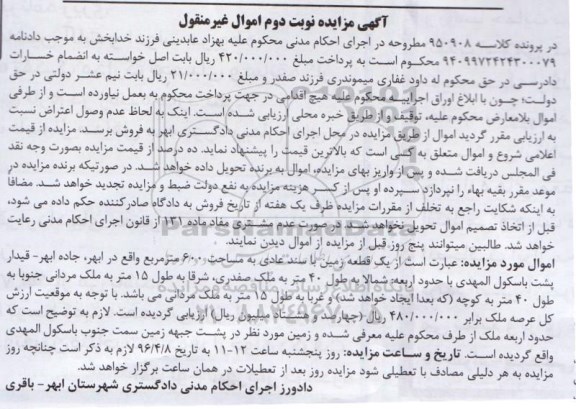 آگهی مزایده نوبت دوم اموال غیرمنقول
در پرونده کلاسه ۹۵۰۹۰۸ مطروحه در اجرای احکام مدنی محکوم علیه بهزاد عابدینی فرزند خدابخش به موجب دادنامه
۹۴۰۹۹۷۲۴۲۴۳۰۰۰۷۹ محکوم است به پرداخت مبلغ ۴۲۰/۰۰۰/۰۰۰ ریال بابت اصل خواسته به انضمام خسارات
دادرسی در حق محکوم له داود غفاری میموندری فرزند صفدر و مبلغ ۲۱/۰۰۰/۰۰۰ ریال بابت نیم عشر دولتی در حق
دولت؛ چون با ابلاغ اوراق اجراییه محکوم علیه هیچ اقدامی در جهت پرداخت محکوم به بعمل نیاورده است و از طرفی
اموال بلامعارض محکوم علیه، توقیف و از طریق خبره محلی ارزیابی شده است. اینک به لحاظ عدم وصول اعتراض نسبت
به ارزیابی مقرر گردید اموال از طریق مزایده در محل اجرای احکام مدنی دادگستری ابهر به فروش برسد. مزایده از قیمت
اعلامی شروع و اموال متعلق به کسی است که بالاترین قیمت را پیشنهاد نماید. ده درصد از قیمت مزایده بصورت وجه نقد
فی المجلس دریافت شده و پس از واریز بهای مزایده، اموال به برنده تحویل داده خواهد شد. در صورتیکه برنده مزایده در
موعد مقرر بقیه بهاء را نپردازد سپرده او پس از کسر هزینه مزایده به نفع دولت ضبط و مزایده تجدید خواهد شد. مضافاً
به اینکه شکایت راجع به تخلف از مقررات مزایده ظرف یک هفته از تاریخ فروش به دادگاه صادرکننده حکم داده می شود،
قبل از اتخاذ تصمیم اموال تحویل نخواهد شد. در صورت عدم مشتری مفاد ماده ۱۳۱ از قانون اجرای احکام مدنی رعایت
خواهد شد. طالبین میتوانند پنج روز قبل از مزایده از اموال دیدن نمایند.
اموال مورد مزایده: عبارت است از یک قطعه زمین با سند عادی به مساحت ۶۰۰ مترمربع واقع در ابهر، جاده ابهر- قیدار
پشت باسکول المهدی با حدود اربعه: شمالا به طول ۴۰ متر به ملک صفدری، شرقا به طول ۱۵ متر به ملک مردانی جنوبا به
طول ۴۰ متر به کوچه (که بعدا ایجاد خواهد شد) و غربا به طول ۱۵ متر به ملک مردانی می باشد. با توجه به موقعیت ارزش
کل عرصه ملک برابر ۴۸۰/۰۰۰/۰۰۰ ریال (چهارصد و هشتاد میلیون ریال) ارزیابی گردیده است. لازم به توضیح است که
حدود اربعه ملک از طرف محکوم علیه معرفی شده و زمین مورد نظر در پشت جبهه زمین سمت جنوب باسکول المهدی
واقع گردیده است. تاریخ و ساعت مزایده: روز پنجشنبه ساعت ۱۲-۱۱ به تاریخ ۹۶/۴/۸ لازم به ذکر است چنانچه روز
مزایده به هر دلیلی مصادف با تعطیلی شود مزایده روز بعد از تعطیلات در همان ساعت برگزار خواهد شد.
دادورز اجرای احکام مدنی دادگستری شهرستان ابهر- باقری